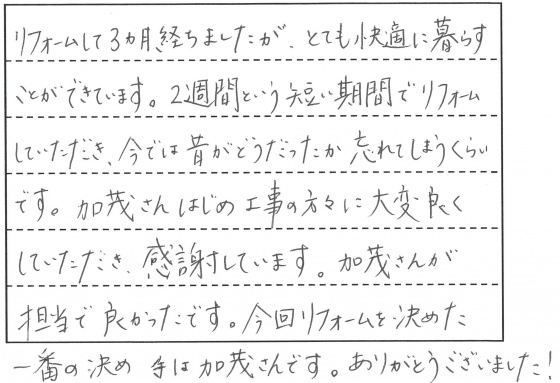 リフォームして3ヵ月経ちましたが、とても快適に暮らす
ことができています。2週間という短い期間でリフォーム
していただき、今では昔がどうだったか忘れてしまうくらい
です。加茂さんはじめ工事の方々に大変良く
していただき、感謝しています。加茂さんが
担当で良かったです。今回リフォームを決めた
一番の決め手は加茂さんです。ありがとうございました!